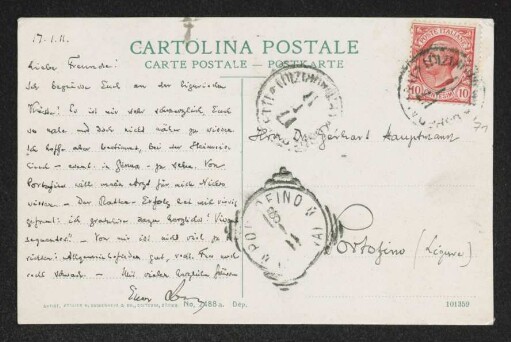 17.1.11.
CARTOLINA POSTALE
CARTE POSTALE - POSTKARTE
POSTE ITALIANE
10 10
Liebe Freunde!
Ich begrüsse Euch an der ligurischen
Küste! Es ist mir sehr schmerzlich, Euch
so nahe und doch nicht näher zu wissen.
Ich hoffe aber bestimmt, bei der Heimreise
Euch - event. in Genua - zu sehen. Von
Portofino will mein Arzt für mich Nichts
wissen. - Der Ratten-Erfolg hat mich riesig
gefreut: ich gratuliere dazu herzlichst!
sequentes! - Von mir ist nicht viel zu
: Allgemeinbefinden gut, nur noch
recht schwach. - Mit vielen herzlichen Grüssen
Euer
Herrn Dr. Gerhart Hauptmann
Portofino (Ligure)
PORTOFINO
No. 2488a. Dép.
101359